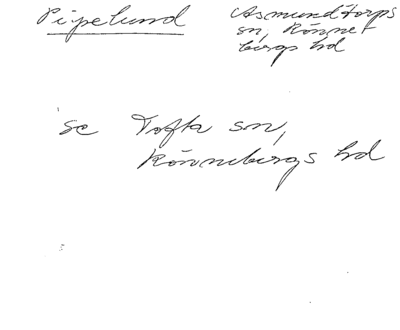 Pipelund
Asmundtorps
sn, Rönne-
bergs hd
se Tofta sn,
Rönnebergs hd